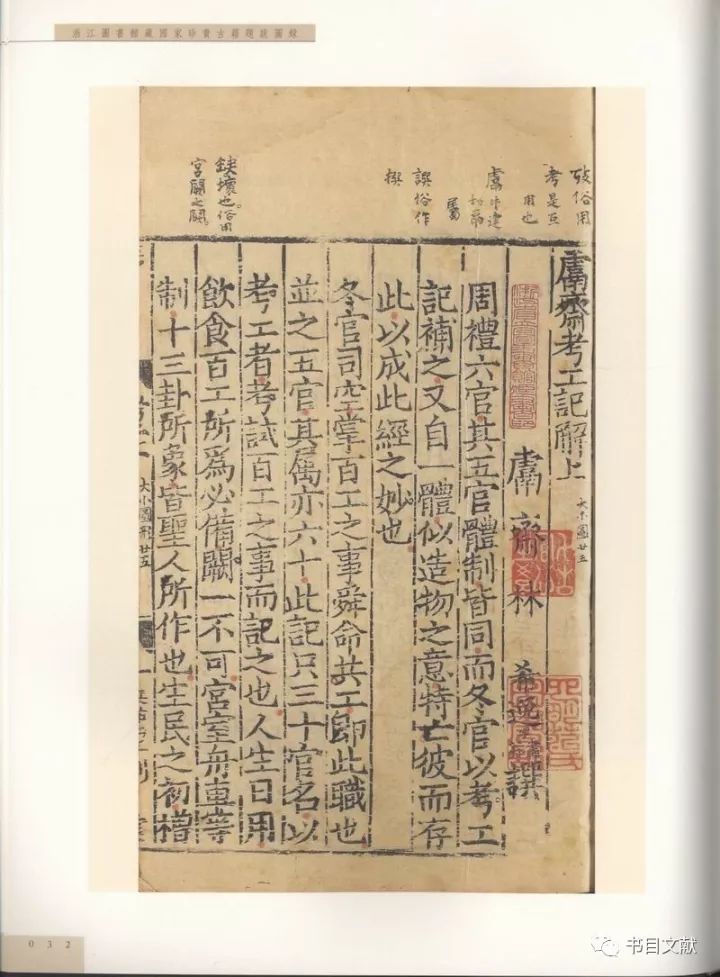 浙江圖書館藏國家珍貴古籍題跋圖錄
攷俗用
考是正
用也
屬
誤俗作
撰
鈌壞也。俗用
宮闕之闕。
鬳齋考工記解上
大小圖廿五
鬳齋林希逸
撰
周禮六官其五官體制皆同而冬官以考工
記補之又自一體似造物之意特亡彼而存
此以成此經之妙也
冬官司空掌百工之事舜命共工即此職也
並之五官其属亦六十此記只三十官名以
考工者考試百工之事而記之也人生日用
飲食百工所爲必備闕一不可宮室舟車等
制十三卦所象皆聖人所作也生民之初橧
大小圖廿五
032
书目文献